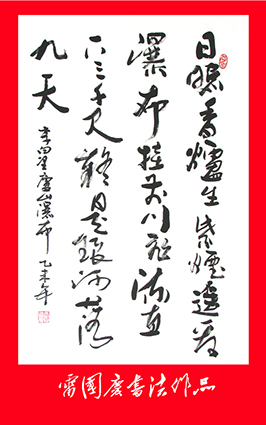 日照香爐生紫煙遙看
瀑布挂前川飛流直
下三千尺疑是銀河落
九天
李白望廬山瀑布 乙未年
雷國慶書法作品